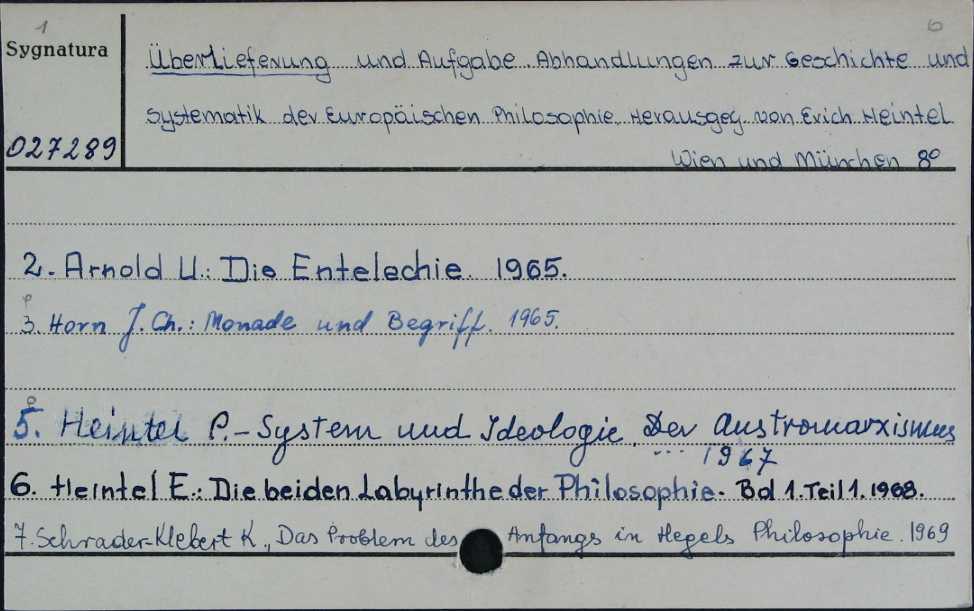 1 6
Sygnatura
Überlieferung und Aufgabe. Abhandlungen zur Geschichte und
Systematik der Europäischen Philosophie. Herausgeg. von Erich Heintel
027289
Wien und München 8°
2. Arnold U.: Die Entelechie. 1965.
3. Horn J. Ch.: Monade und Begriff. 1965.
5. Heintel P. - System und Ideologie. Der Austromarxismus
... 1967
6. Heintel E.: Die beiden Labyrinthe der Philosophie. Bd 1. Teil 1. 1968.
7. Schrader-Klebert K., Das Problem des Anfangs in Hegels Philosophie. 1969